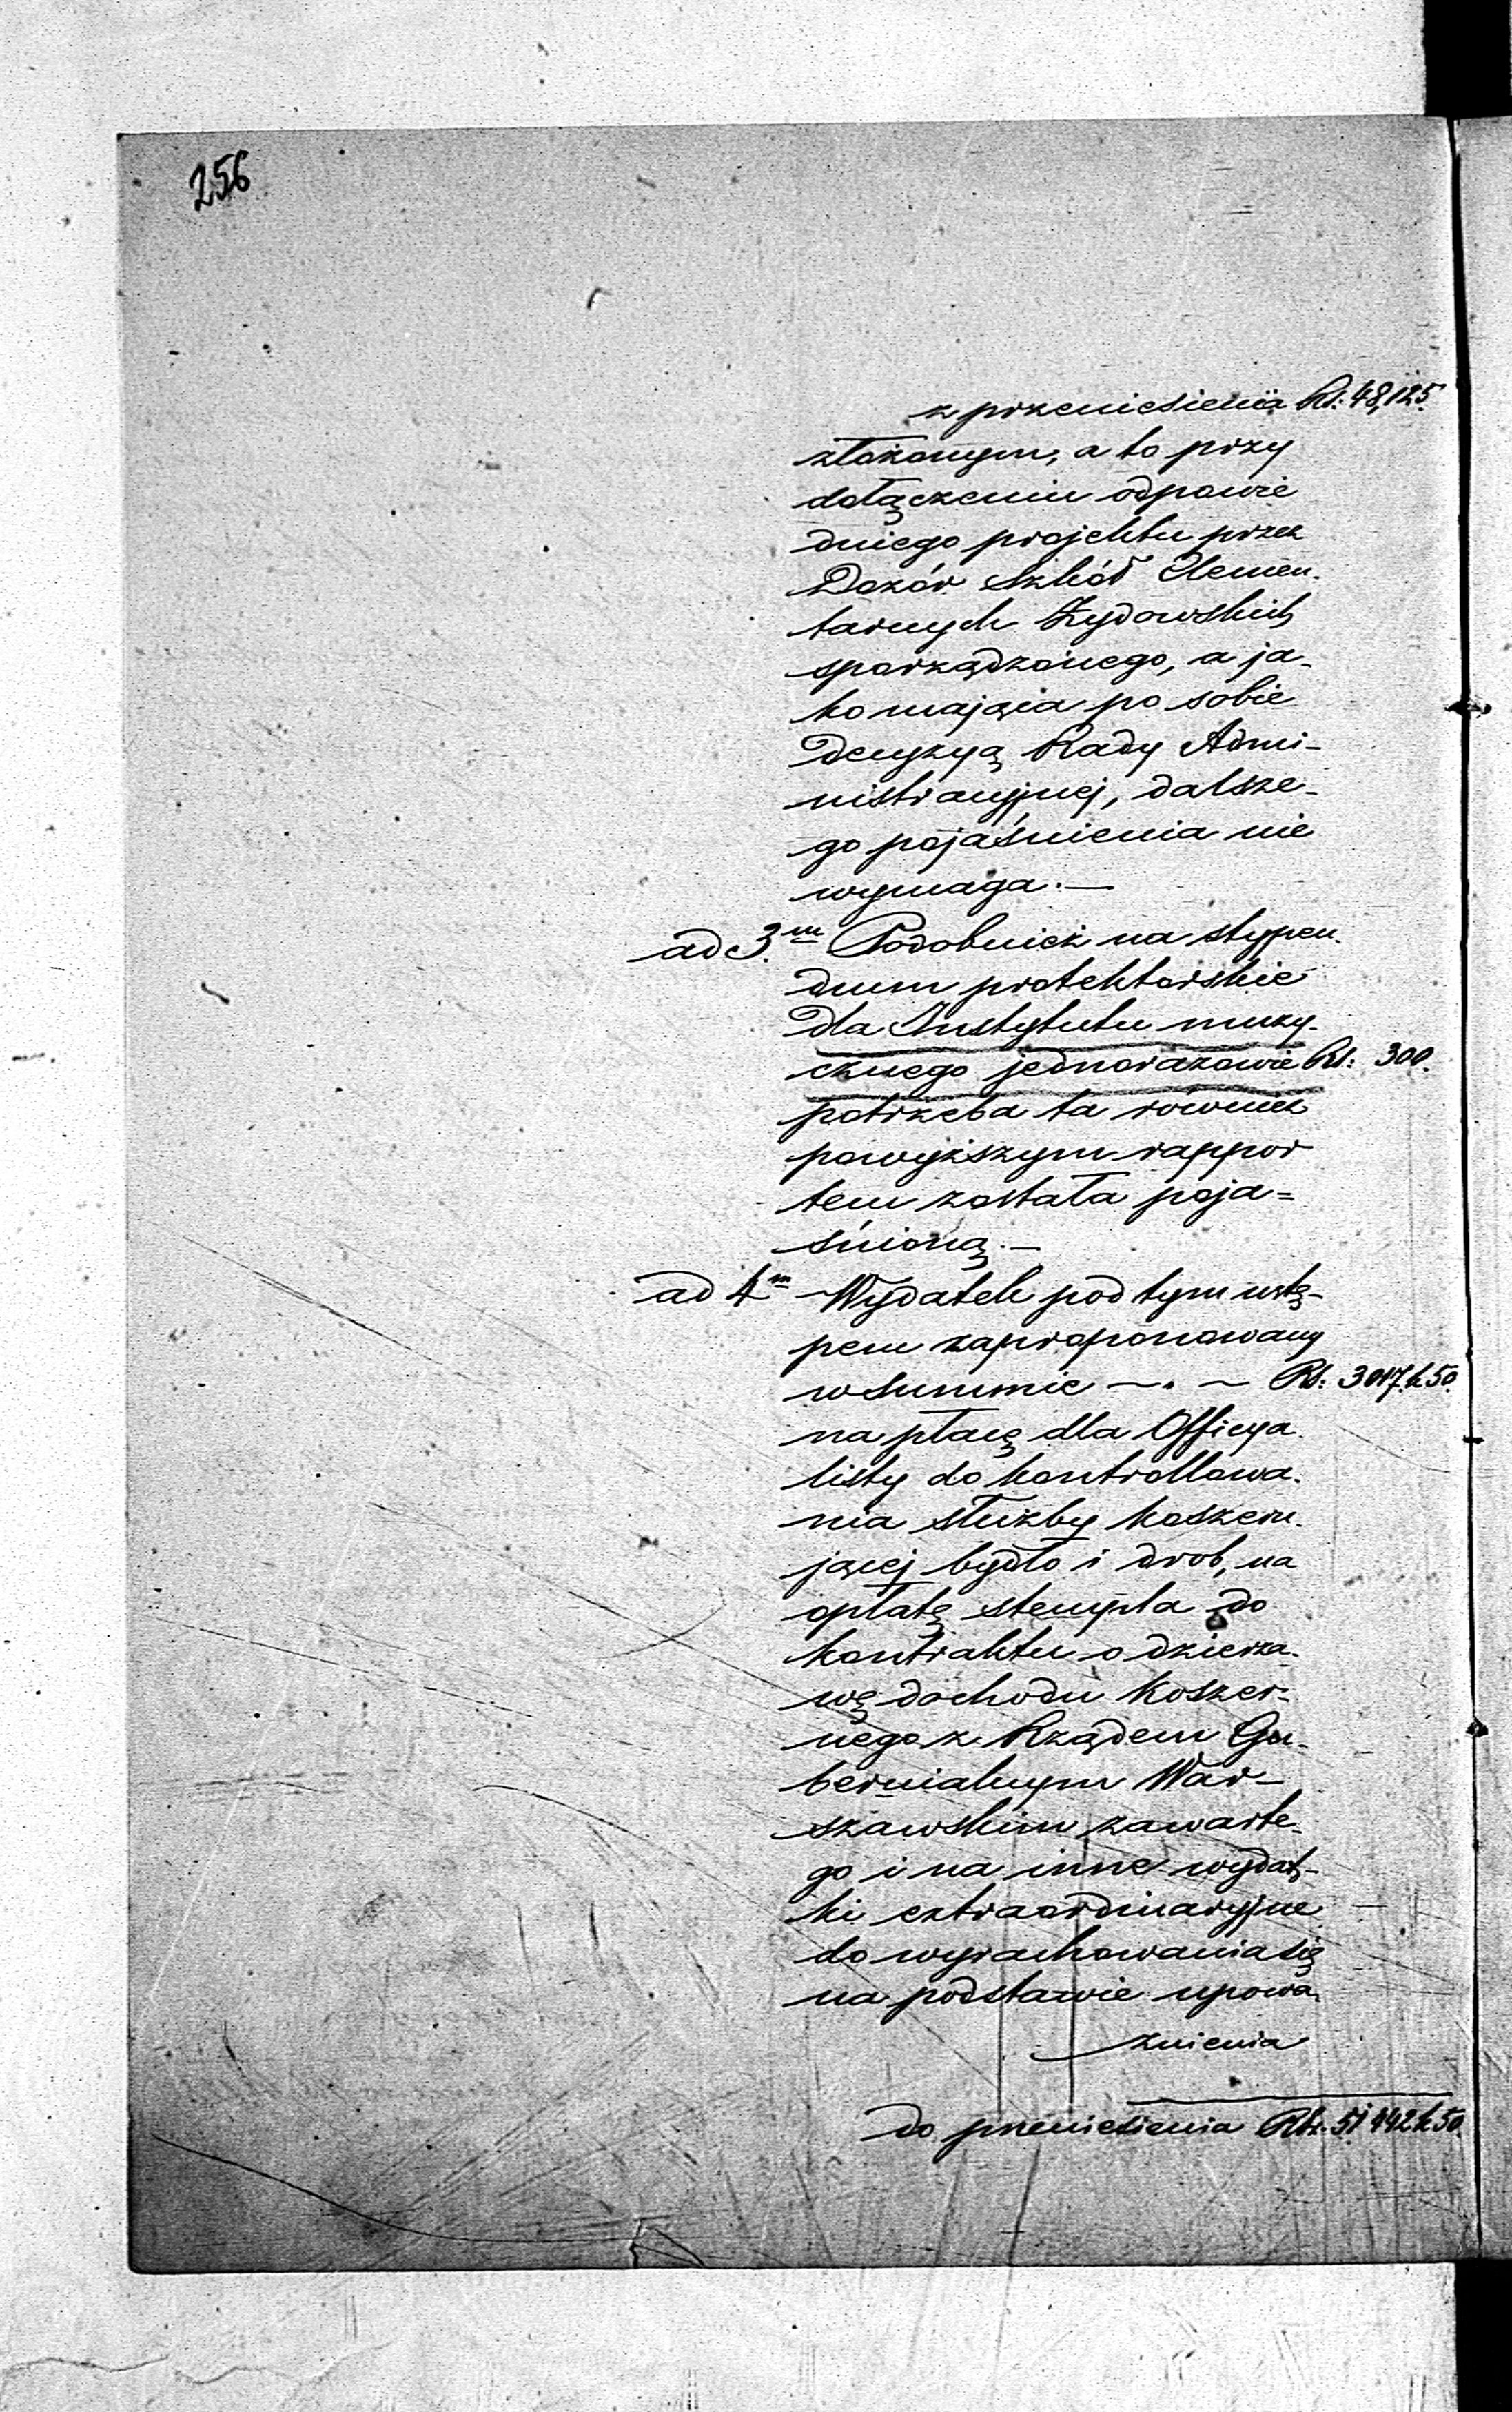 256
z przeniesienia Rs: 48,125.
złożonym, a to przy
dołączeniu odpowie
dniego projektu przez
Dozór Szkół Elemen-
tarnych Żydowskich
sporządzonego, a ja-
ko mająca po sobie
decyzyą Rady Admi-
nistracyjnej, dalsze-
go pojaśnienia nie
wymaga. —
ad 3.m Podobnież na stypen-
dium protektorskie
dla Instytutu muzy-
cznego jednorazowie Rs: 300.
potrzeba ta również
powyższym rappor
tem została poja=
śnioną. —
ad 4m Wydatek pod tym ustę-
pem zaproponowany
w summie — . — Rs: 3017. k 50.
na płacę dla Officya
listy do kontrollowa-
nia służby koszeru-
jącej bydło i drob, na
opłatę stempla do
kontraktu o dzierża-
wę dochodu koszer-
nego z Rządem Gu-
bernialnym War-
szawskim zawarte-
go i na inne wydat-
ki extraordinaryjne
do wyrachowania się
na podstawie upowa-
żnienia
do przeniesienia Rs. 51 442 k 50.